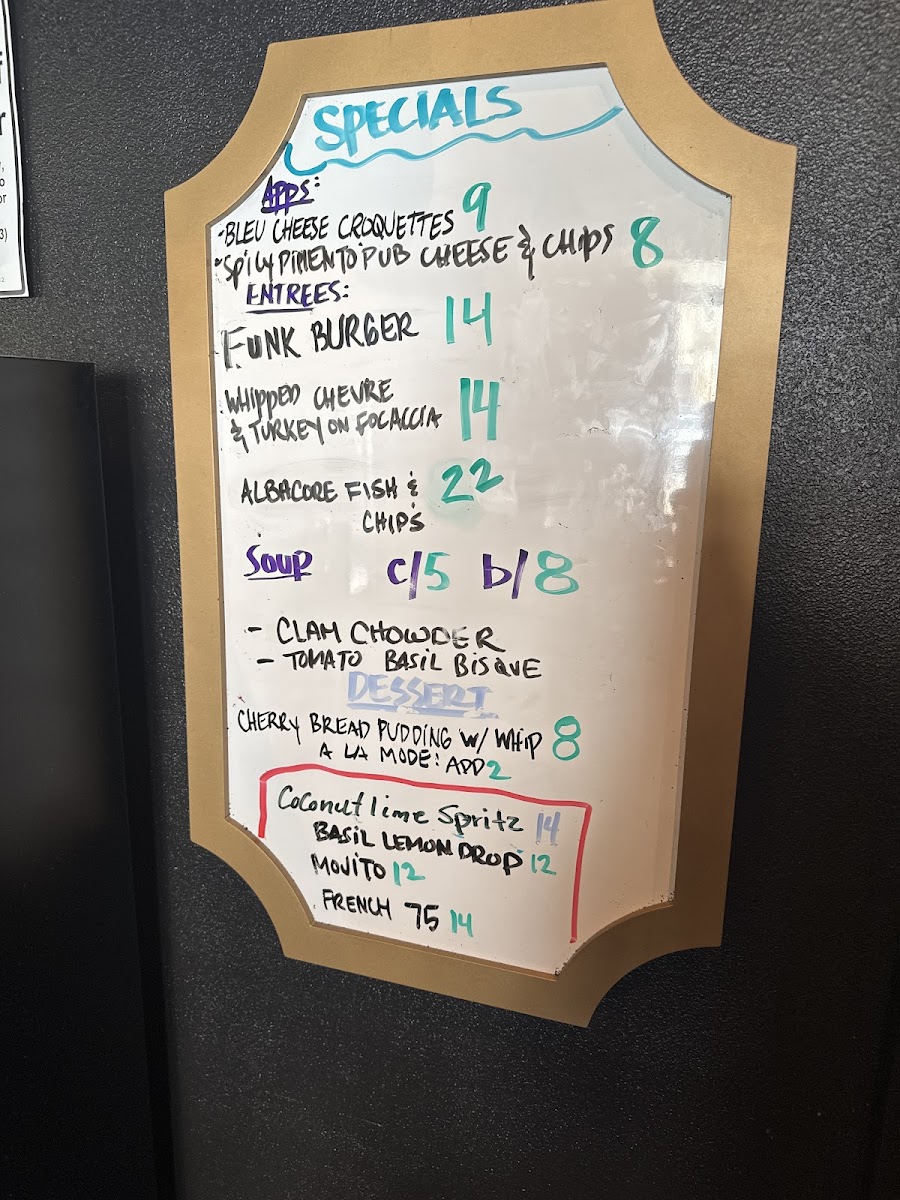 SPECIALS
APPS:
-BLEU CHEESE CROQUETTES 9
-SPICY PIMENTO PUB CHEESE & CHIPS 8
ENTREES:
FUNK BURGER 14
WHIPPED CHEVRE
& TURKEY ON FOCACCIA 14
ALBACORE FISH & 22
CHIPS
SOUP c/5 b/8
- CLAM CHOWDER
- TOMATO BASIL BISQUE
DESSERT
CHERRY BREAD PUDDING W/ WHIP 8
A LA MODE: ADD 2
Coconut lime Spritz 14
BASIL LEMON DROP 12
MOJITO 12
FRENCH 75 14